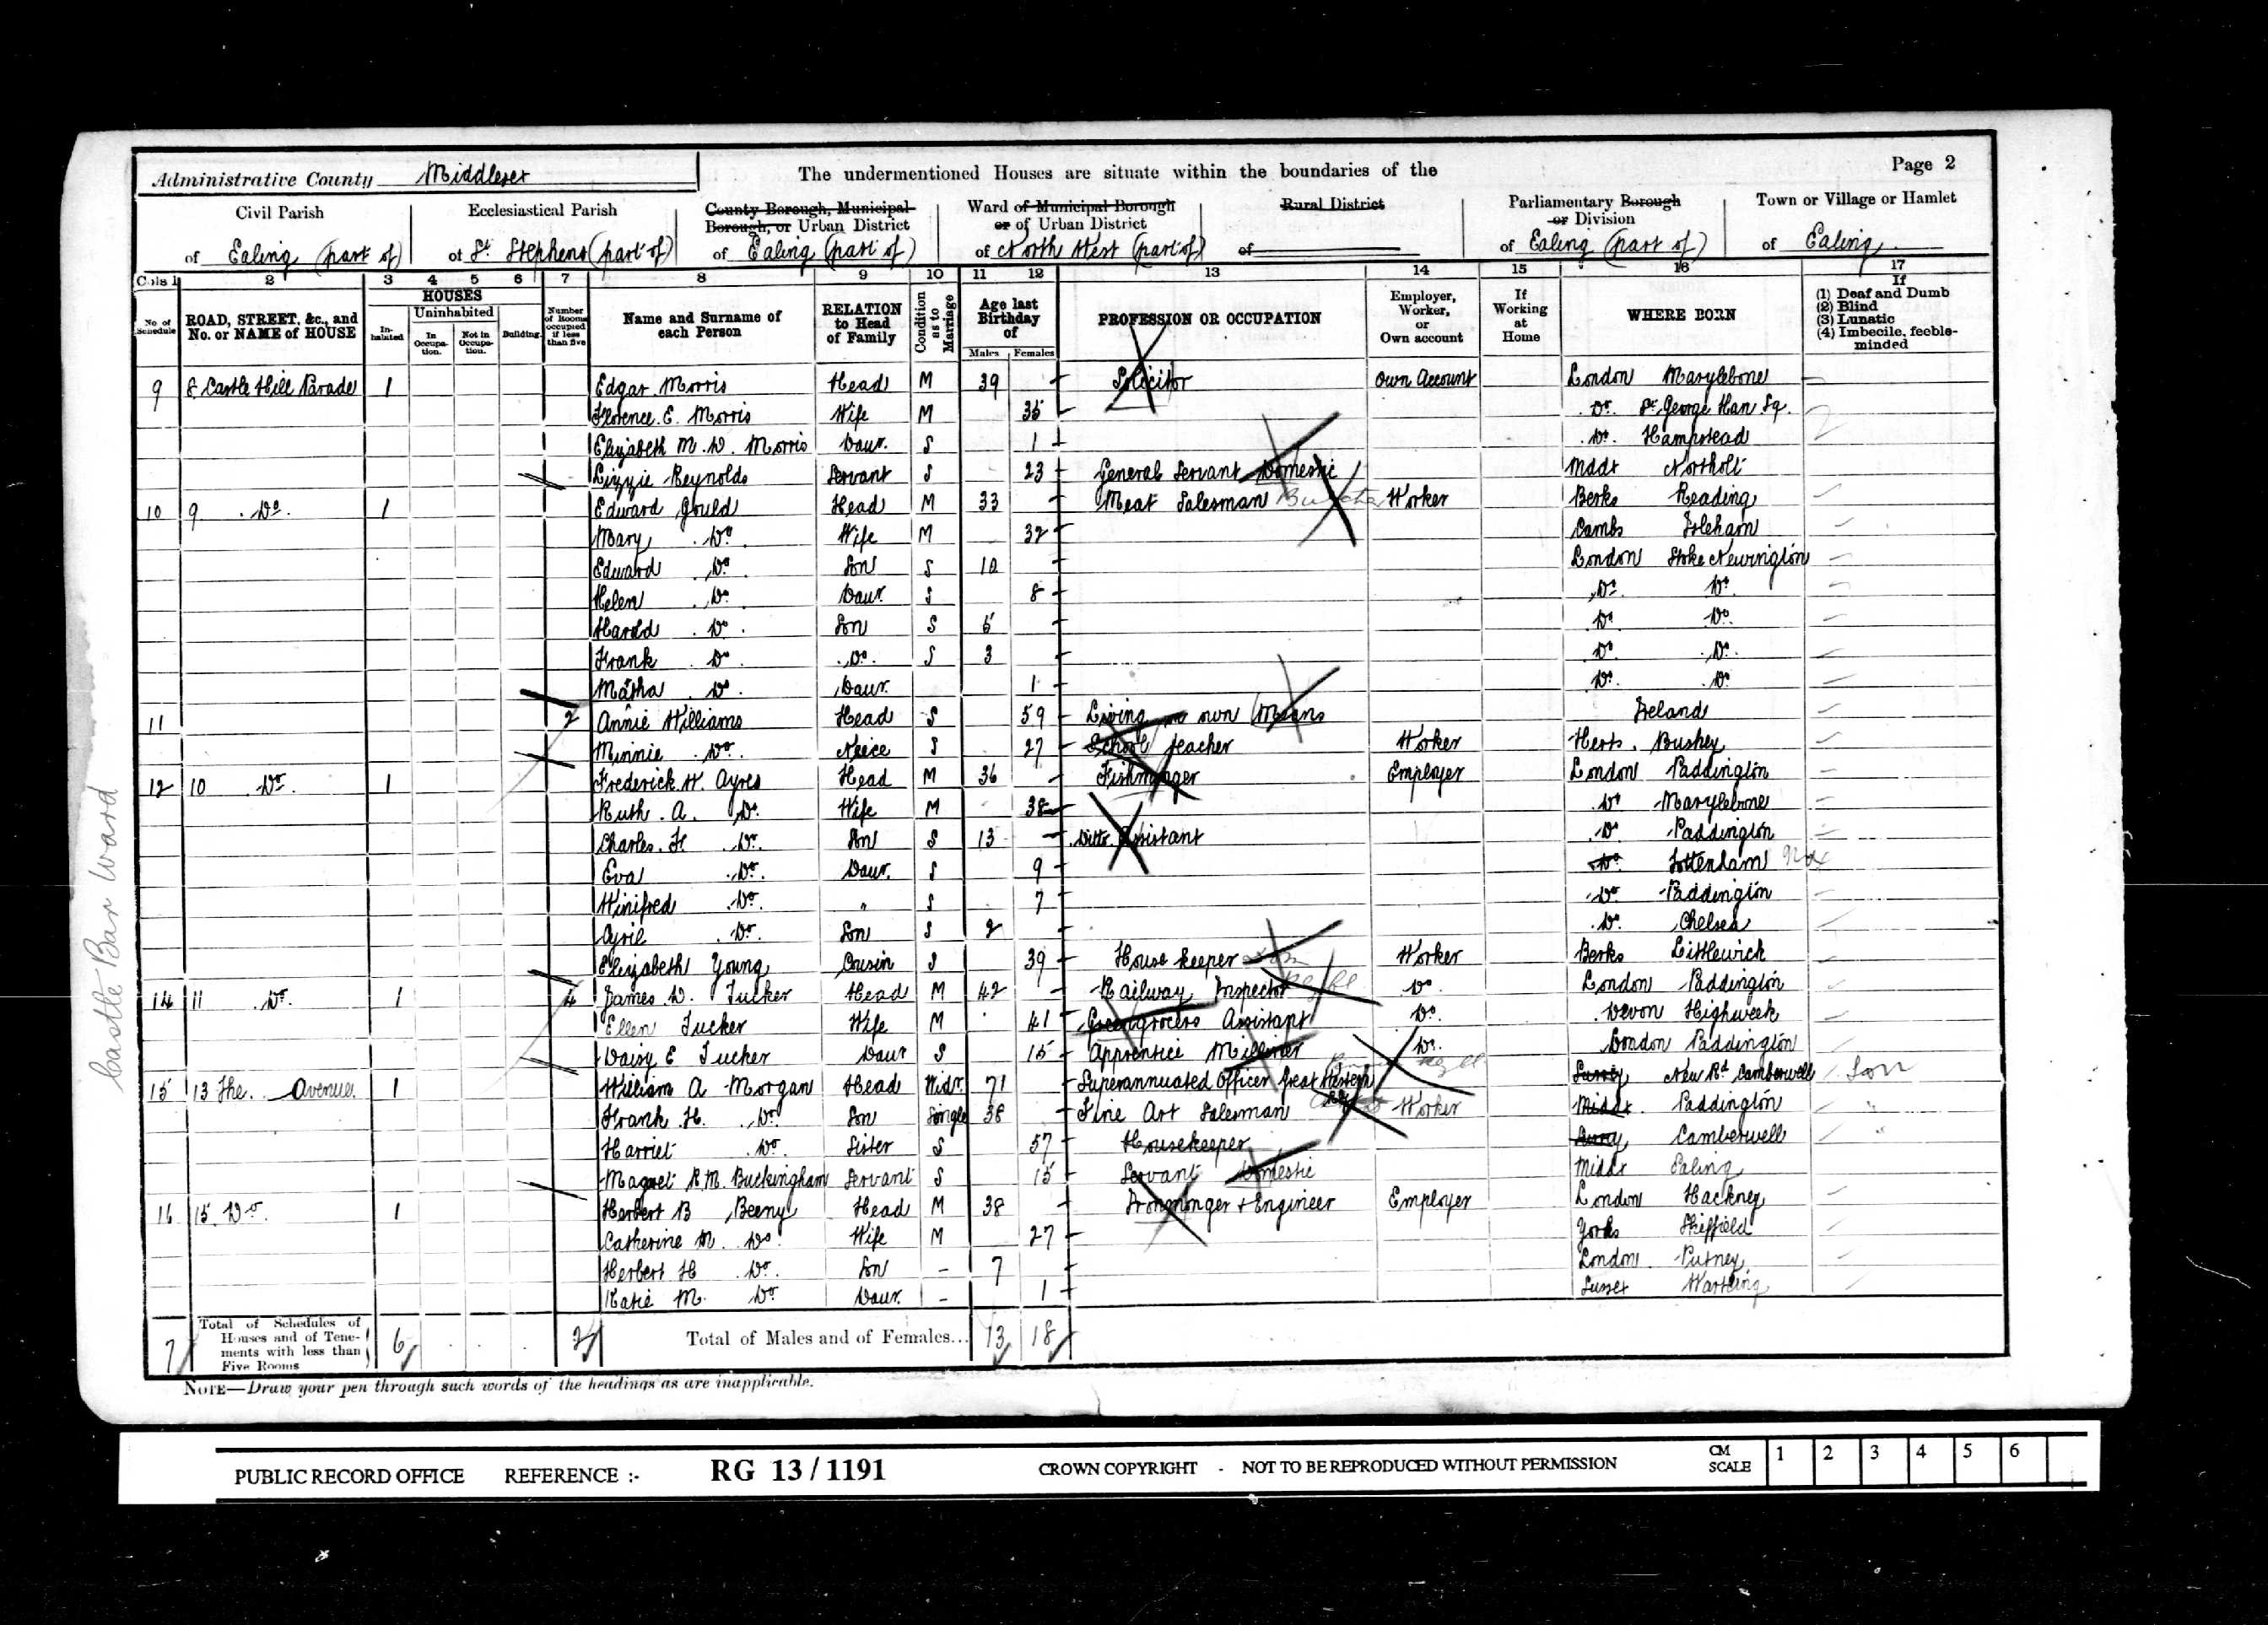 Page 2
Administrative County Middlesex The undermentioned Houses are situate within the boundaries of the
Civil Parish Ecclesiastical Parish County Borough, Municipal Borough, or Urban District Ward of Municipal Borough or of Urban District Rural District Parliamentary Borough or Division Town or Village or Hamlet
of Ealing (part of) of St. Stephens (part of) of Ealing (part of) of North West (part of) of of Ealing (part of) of Ealing
Cols 1 2 3 4 5 6 7 8 9 10 11 12 13 14 15 16 17
No. of Schedule ROAD, STREET, &c., and No. or NAME of HOUSE HOUSES Inhabited Uninhabited In Occupation. Not in Occupation. Building. Number of Rooms occupied if less than five Name and Surname of each Person RELATION to Head of Family Condition as to Marriage Age last Birthday of Males Females PROFESSION OR OCCUPATION Employer, Worker, or Own account If Working at Home WHERE BORN If (1) Deaf and Dumb (2) Blind (3) Lunatic (4) Imbecile, feeble-minded
9 8 Castle Hill Parade 1 Edgar Morris Head M 39 Solicitor Own Account London Marylebone
Florence E. Morris Wife M 35 Do. St. George Han Sq.
Elizabeth M. D. Morris Daur. S 1 Do. Hampstead
Lizzie Reynolds Servant S 23 General Servant Domestic Middx Northolt
10 9 Do. 1 Edward Gould Head M 33 Meat Salesman Butcher Worker Berks Reading
Mary Do. Wife M 32 Cambs Isleham
Edward Do. Son S 10 London Stoke Newington
Helen Do. Daur. S 8 Do. Do.
Harold Do. Son S 5 Do. Do.
Frank Do. Do. S 3 Do. Do.
Do. Daur. 1 Do. Do.
11 2 Annie Williams Head S 59 Living on own Means Ireland
Minnie Do. Neice S 27 School Teacher Worker Herts. Bushey
12 10 Do. 1 Frederick W. Ayres Head M 36 Fishmonger Employer London Paddington
Ruth A. Do. Wife M 38 Do. Marylebone
Charles F. Do. Son S 13 Ditto Assistant Do. Paddington
Eva Do. Daur. S 9 Do. Tottenham
Winifred Do. " S 7 Do. Paddington
Cyril Do. Son S 2 Do. Chelsea
Elizabeth Young Cousin S 39 House keeper Dom Worker Berks Littlewick
14 11 Do. 1 4 James D. Tucker Head M 42 Railway Inspector Do. London Paddington
Ellen Tucker Wife M 41 Greengrocers Assistant Do. Devon Highweek
Daisy E Tucker Daur S 15 Apprentice Milliner Do. London Paddington
15 13 The Avenue. 1 William A Morgan Head Widr. 71 Superannuated Officer Great Western Rly Surrey New Rd. Camberwell Lon
Frank H. Do. Son Single 38 Fine Art Salesman Worker Middx. Paddington "
Harriet Do. Sister S 57 Housekeeper Surrey Camberwell "
Magret R. M. Buckingham Servant S 15 Servant Domestic Middx Ealing
16 15 Do. 1 Herbert B Beeny Head M 38 Ironmonger & Engineer Employer London Hackney
Catherine M. Do. Wife M 27 Yorks Sheffield
Herbert H Do. Son - 7 London Putney
Katie M. Do. Daur. - 1 Sussex Wartling
7 Total of Schedules of Houses and of Tenements with less than Five Rooms 6 2 Total of Males and of Females... 13 18
NOTE—Draw your pen through such words of the headings as are inapplicable.
Castle Bar Ward
PUBLIC RECORD OFFICE REFERENCE :- RG 13/1191 CROWN COPYRIGHT - NOT TO BE REPRODUCED WITHOUT PERMISSION CM SCALE 1 2 3 4 5 6